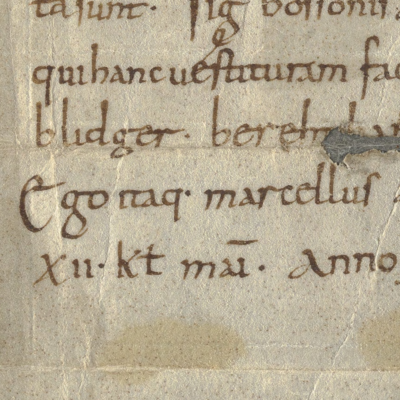 tasunt. sig bosonis
qui hanc uestituram fac
blidger. berehhar
Ego itaq. marcellus
xii. kł mai. Anno